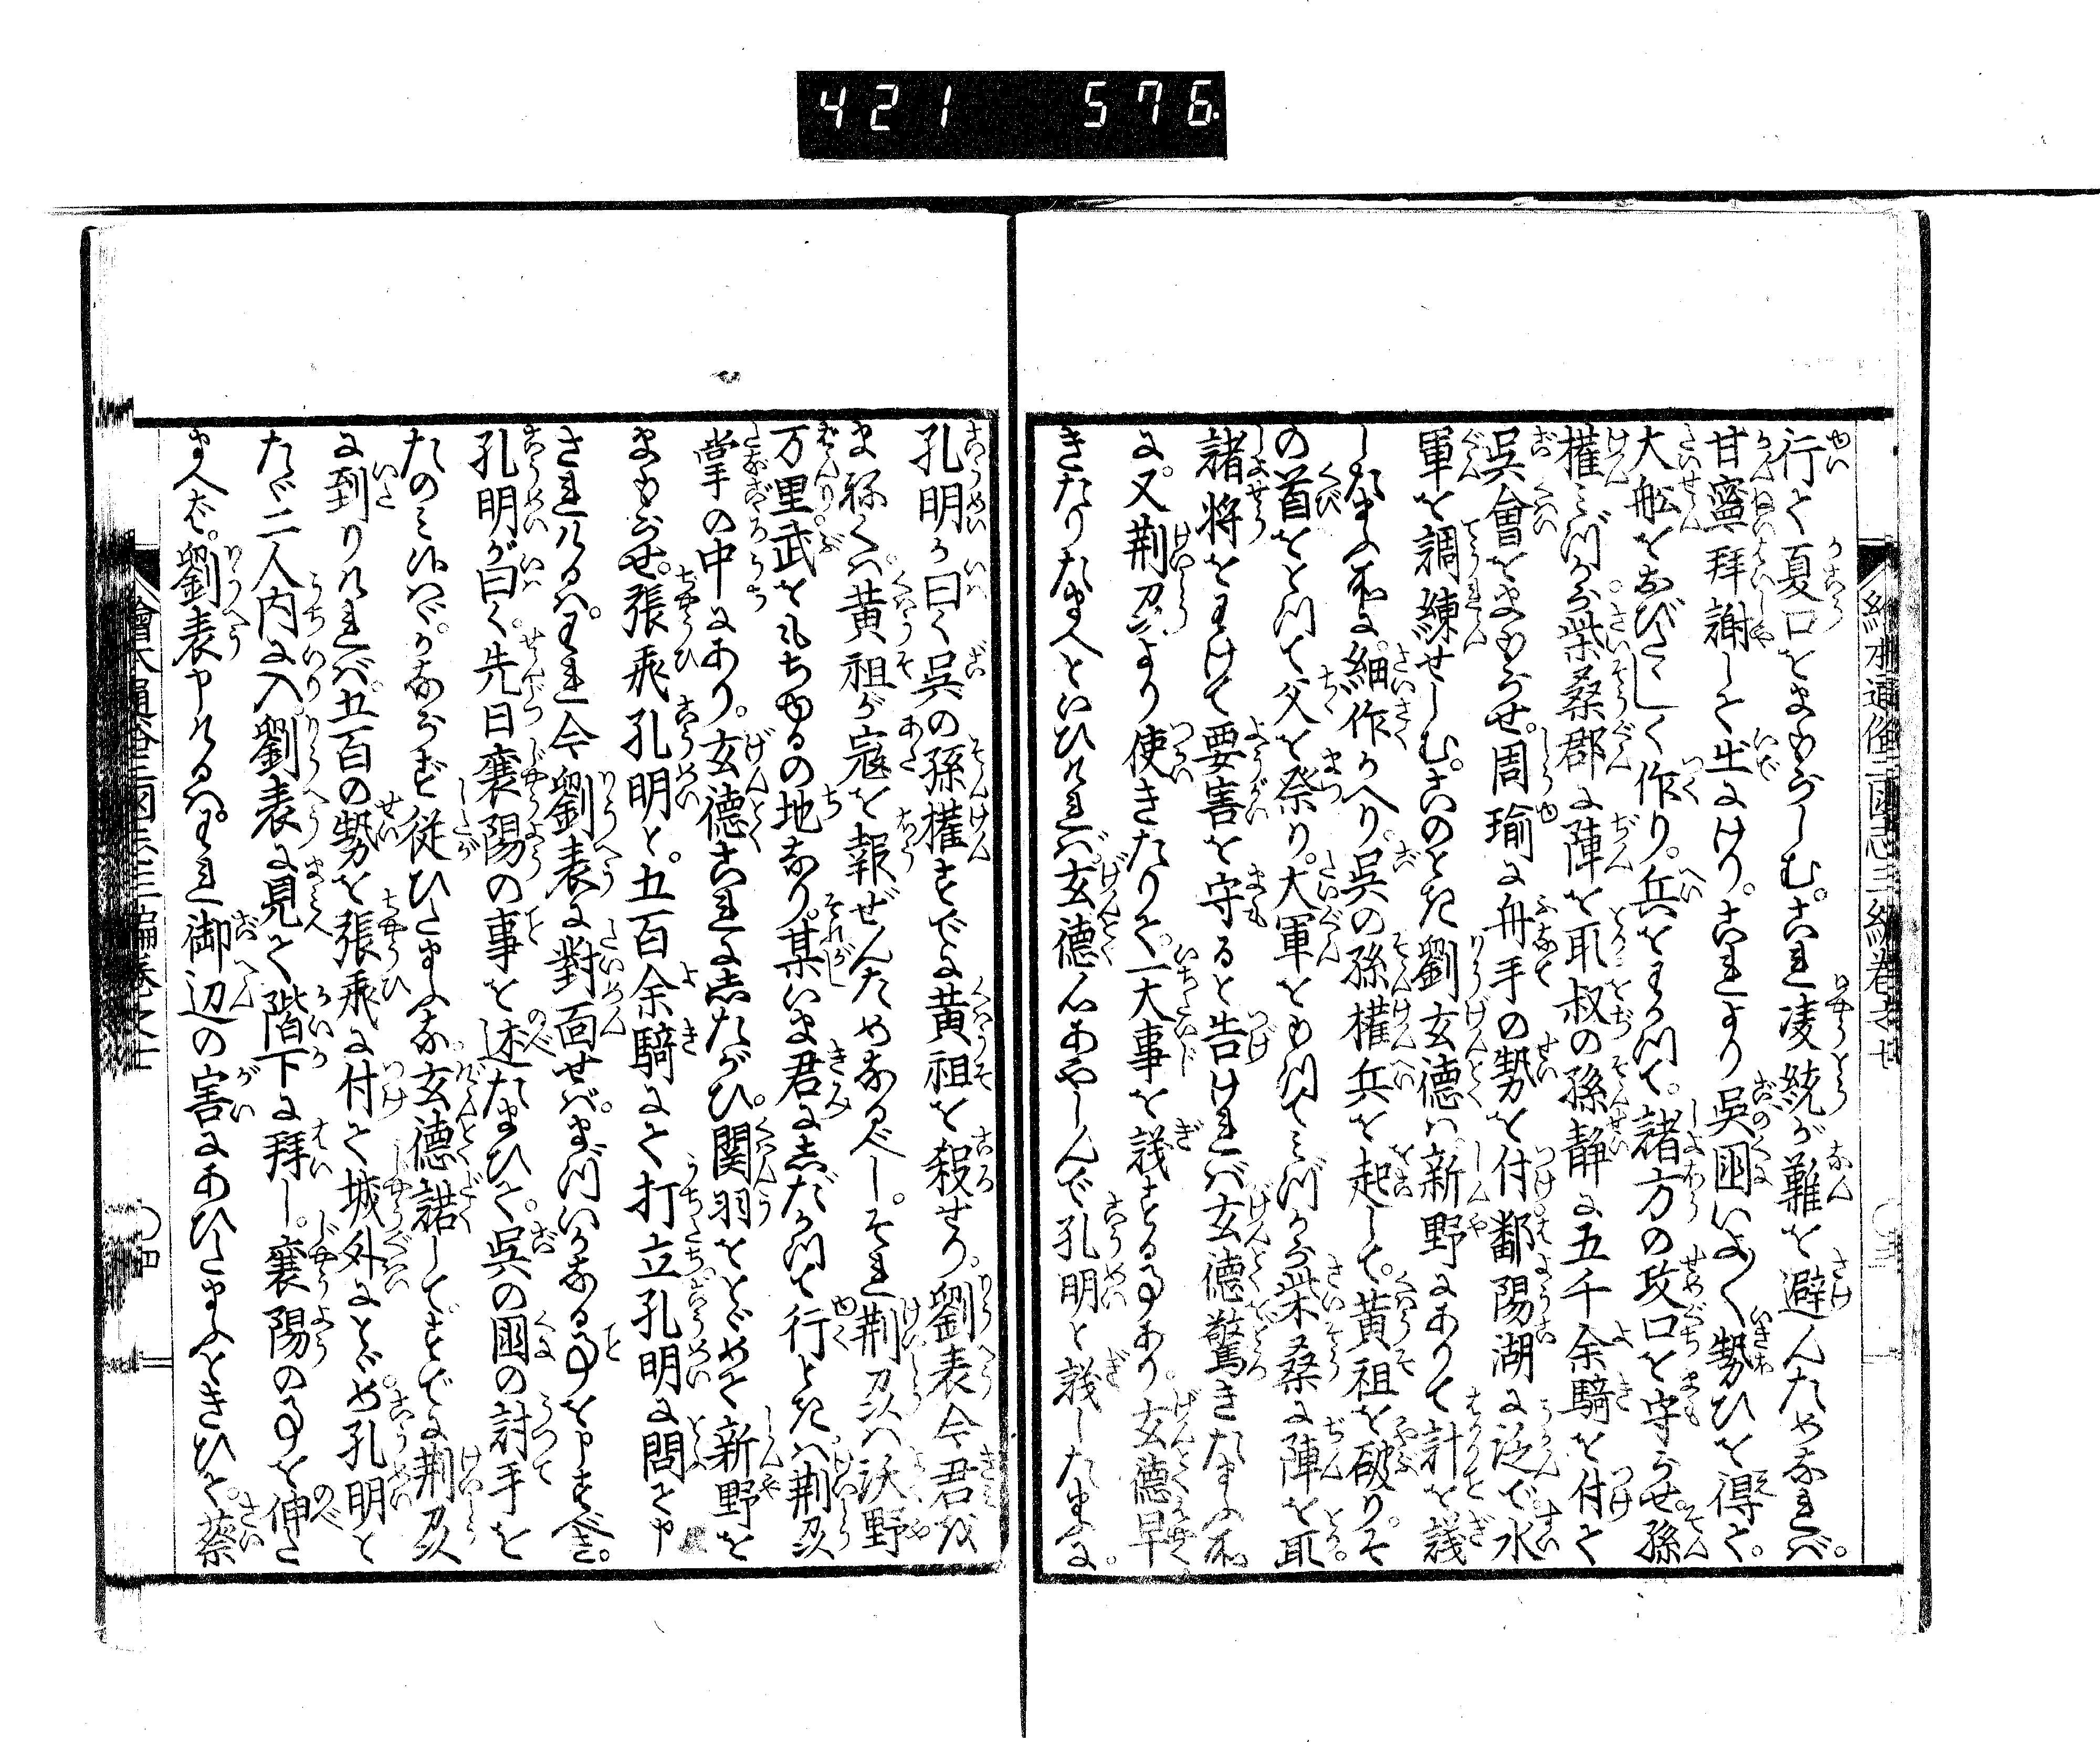 421 576
行て夏口をまもらしむ。これ凌統が難を避んためなれバ。
甘寧拝謝して出にけり。これより呉国いよ〱勢ひを得て。
大舩をおびたゝしく作り。兵をわかつて。諸方の攻口を守らせ。孫
權ミづから柴桑郡に陣を取叔の孫静に五千余騎を付て
呉會をまもらせ。周瑜に舟手の勢を付鄱陽湖に泛で。水
軍を調練せしむ。このとき劉玄徳ハ新野にありて計を議
したまふ所に。細作かへり。呉の孫權兵を起して。黄祖を破り。そ
の首をとつて父を祭り。大軍をもつてミづから柴桑に陣を取。
諸将をわけて要害を守ると告けれバ玄徳驚きたまふ所
に。又荆州より使きたりて。一大事を議することあり。玄徳早
きたりたまへといひけれバ。玄徳心あやしんで孔明と議したまふに。
孔明か曰く呉の孫權すでに黄祖を殺せり。劉表今君を
まねくハ。黄祖が寇を報ぜんためなるべし。それ荆州ハ沃野
万里武をもちゆるの地なり。某いま君にしたがつて行ときハ荆州
掌の中にあり。玄徳これにしたがひ。関羽をとゞめて新野を
まもらせ。張飛孔明と。五百余騎にて打立孔明に問て申
されけるハ。われ今劉表に對面せバ。まづいかなることを申すべき。
孔明が曰く。先日襄陽の事を述たまひて。呉の国の討手を
たのミ候ハヾ。かならず従ひたまふな。玄徳諾してすでに荆州
に到りけれバ。五百の勢を張飛に付て城外にとゞめ。孔明と
たゞ二人内に入劉表に見て階下に拝し。襄陽のことを伸た
まへバ。劉表申けるハ。われ御辺の害にあひたまふときひて。蔡